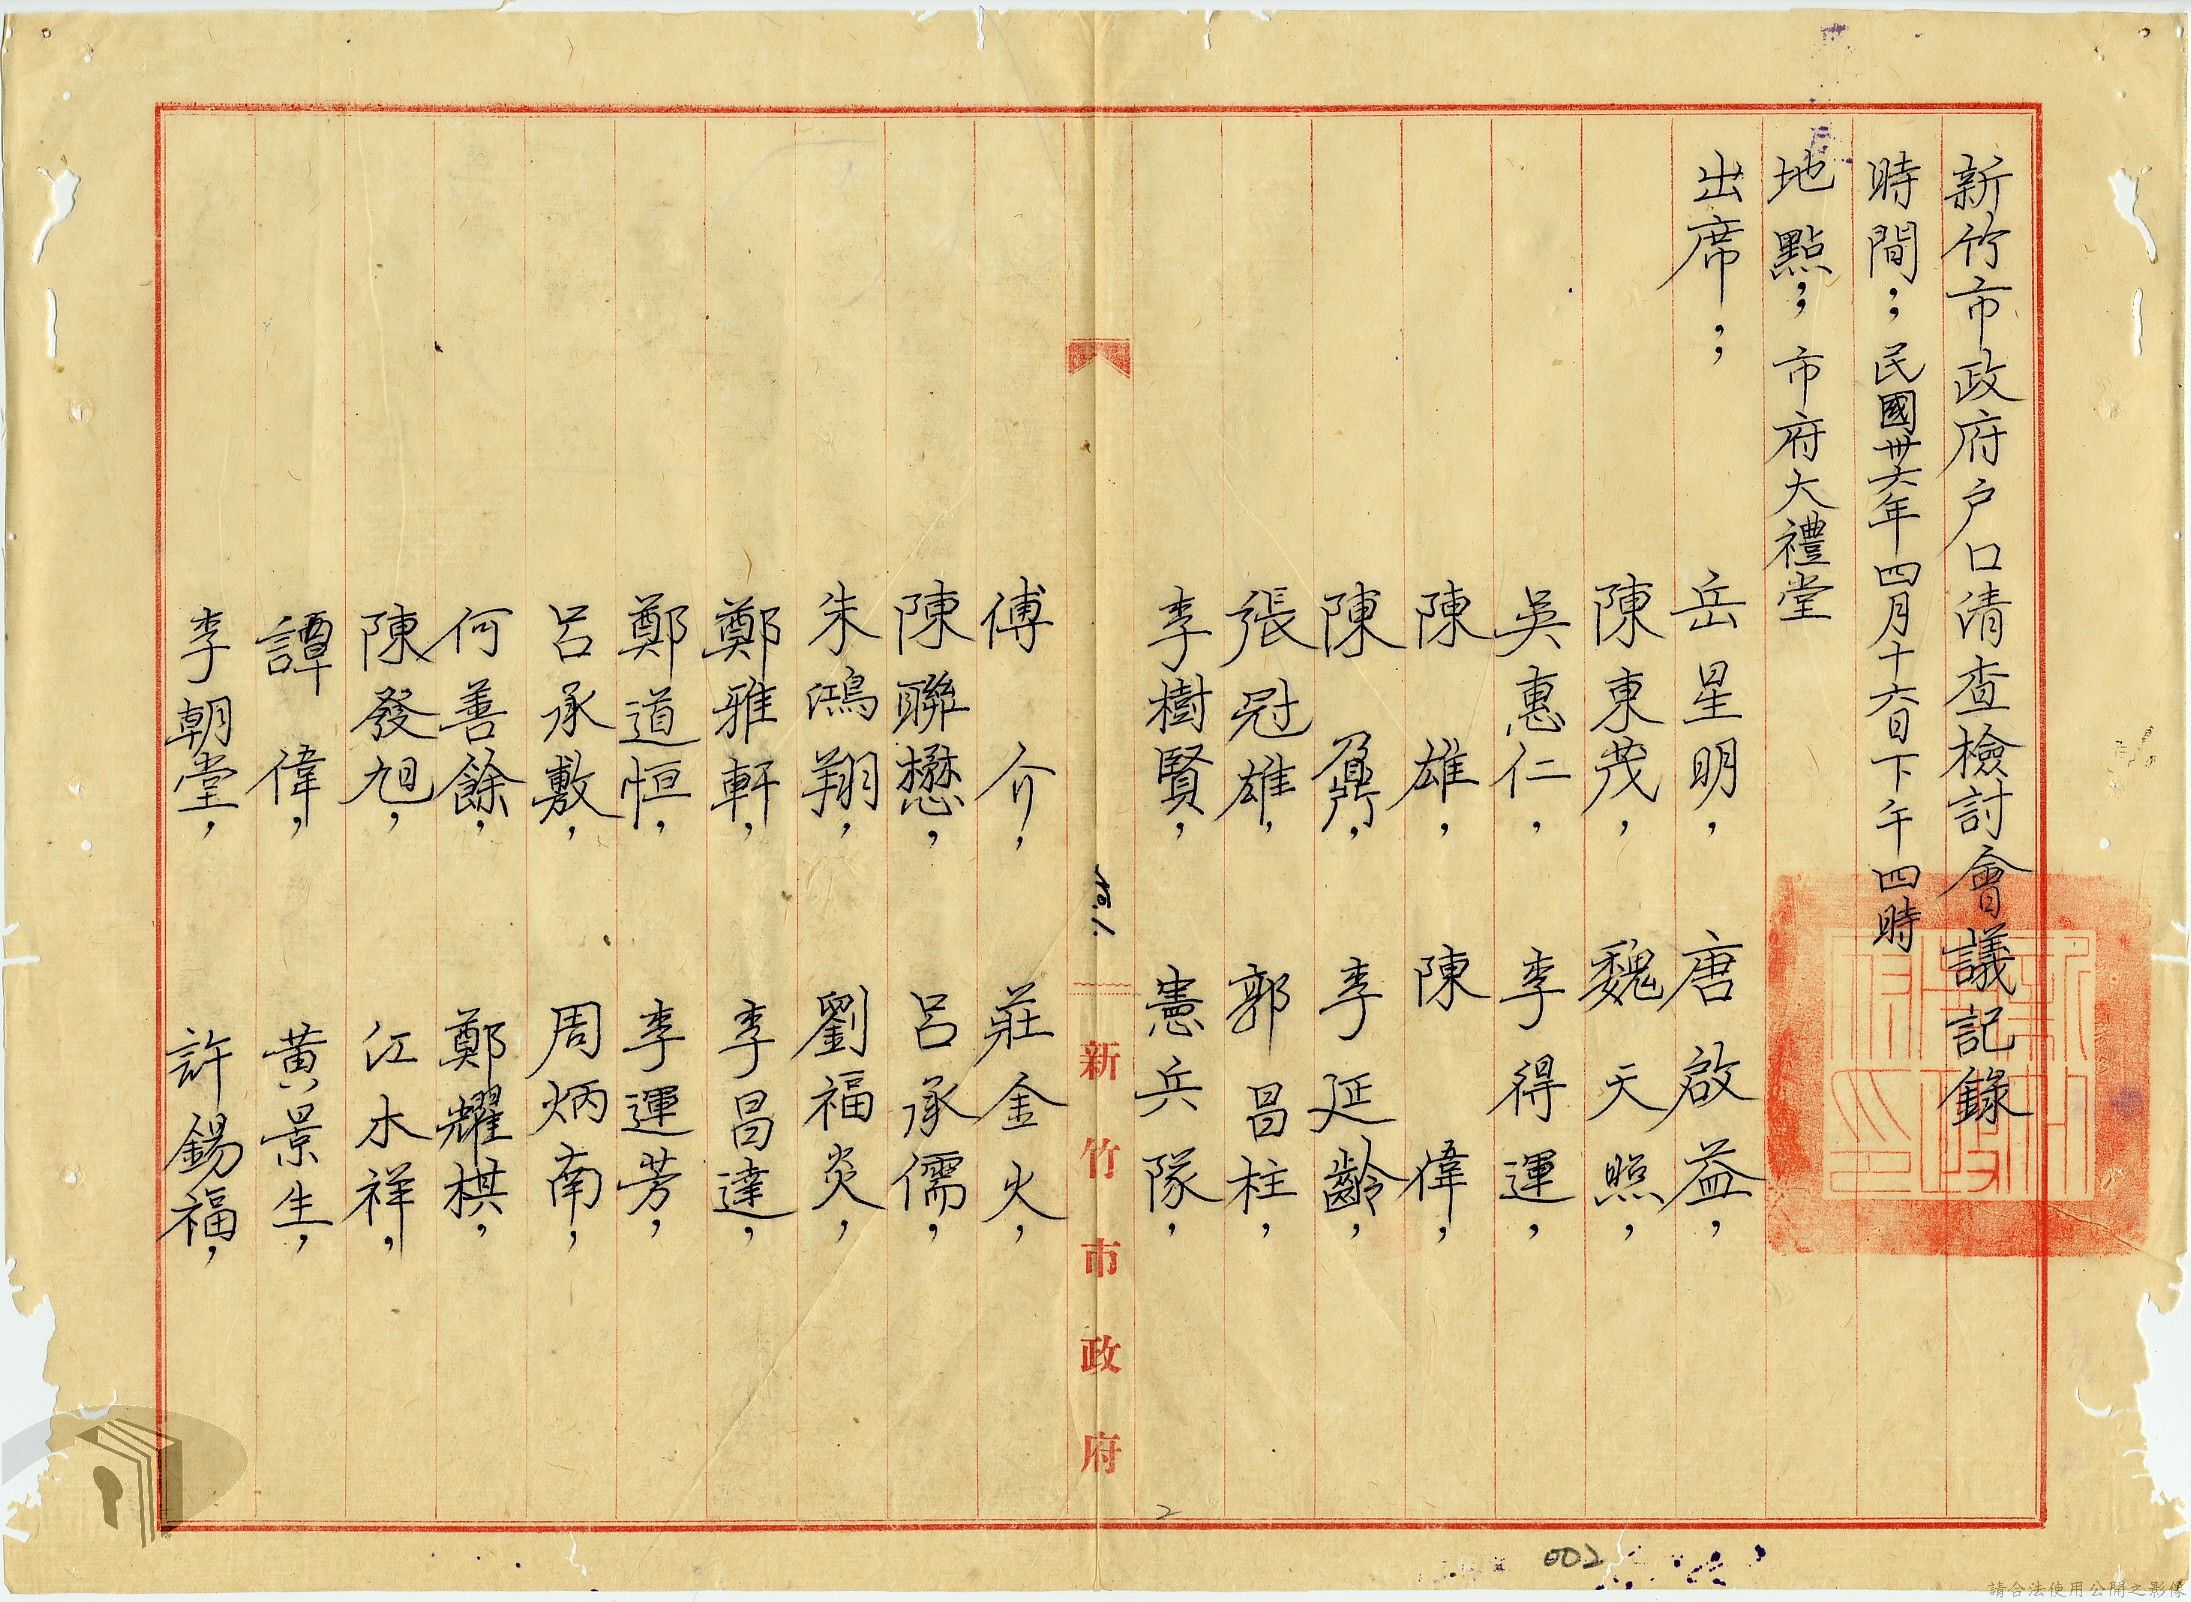 新竹市政府户口清查檢討會議記錄
時間；民國卅六年四月十六日下午四時
地點；市府大禮堂
出席；
岳星明，唐啟益，
陳東茂，魏天照，
吳惠仁，李得運，
陳雄，陳偉，
陳鼐，李延齡，
張冠雄，郭昌柱，
李樹賢，憲兵隊，
No.1.
新竹市政府
傅介，莊金火，
陳聯懋，呂承儒，
朱鴻翔，劉福炎，
鄭雅軒，李昌達，
鄭道恒，李運芳，
呂承敷，周炳南，
何善餘，鄭耀棋，
陳發旭，江水祥，
譚偉，黃景生，
李朝堂，許錫福，
2
002
請合法使用公開之影像